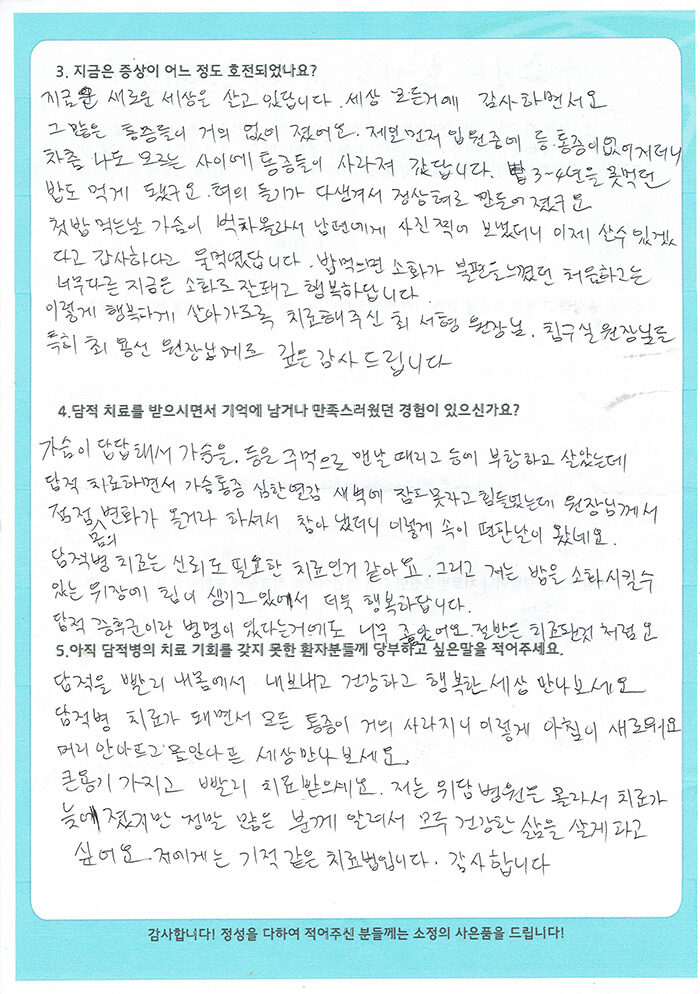 3. 지금은 증상이 어느 정도 호전되었나요?
지금은 새로운 세상을 살고 있답니다. 세상 모든거에 감사하면서요
그 많은 통증들이 거의 없어 졌어요. 제일먼저 입원중에 등.통증이없어지더니
차츰 나도 모르는 사이에 통증들이 사라져 갔답니다. 밥 3~4년을 못먹던
밥도 먹게 됐구요. 혀의 돌기가 다생겨서 정상혀로 만들어졌구요
첫밥 먹는날 가슴이 벅차올라서 남편에게 사진찍어 보냈더니 이제 살수있겠
다고 감사하다고 울먹였답니다. 밥먹으면 소화가 불편을느꼈던 처음하고는
너무다른 지금은 소화도잘돼고 행복하답니다
이렇게 행복하게 살아가도록 치료해주신 최 서형 원장님. 침구실 원장님들
특히 최 용선 원장님께도 깊은감사드립니다
4.담적 치료를 받으시면서 기억에 남거나 만족스러웠던 경험이 있으신가요?
가슴이 답답해서 가슴을. 등을 주먹으로 맨날 때리고 등에 부항하고 살았는데
담적 치료하면서 가슴통증 심한연감 새벽에 잠도못자고힘들었는데 원장님께서
점점 몸의 변화가 올거라 하셔서 참아 냈더니 이렇게 속이 편한날이 왔네요.
담적병 치료는 신뢰도 필요한 치료인거 같아요. 그리고 저는 밥을 소화시킬수
있는 위장에 힘이 생기고있어서 더욱 행복하답니다.
담적 증후군이란 병명이 있다는거에도 너무 좋았어요.절반은 치료된것 처럼요
5.아직 담적병의 치료 기회를 갖지 못한 환자분들께 당부하고 싶은말을 적어주세요.
담적을 빨리 내몸에서 내보내고 건강하고 행복한 세상 만나보세요
담적병 치료가 돼면서 모든 통증이 거의 사라지니 이렇게 아침이 새로워요
머리 안아프고 몸안아픈 세상만나보세요.
큰용기 가지고 빨리 치료받으세요. 저는 위담병원을 몰라서 치료가
늦어졌지만 정말 많은 분께 알려서 모두 건강한 삶을 살게 하고
싶어요. 저에게는 기적같은 치료법입니다. 감사합니다
감사합니다! 정성을 다하여 적어주신 분들께는 소정의 사은품을 드립니다!